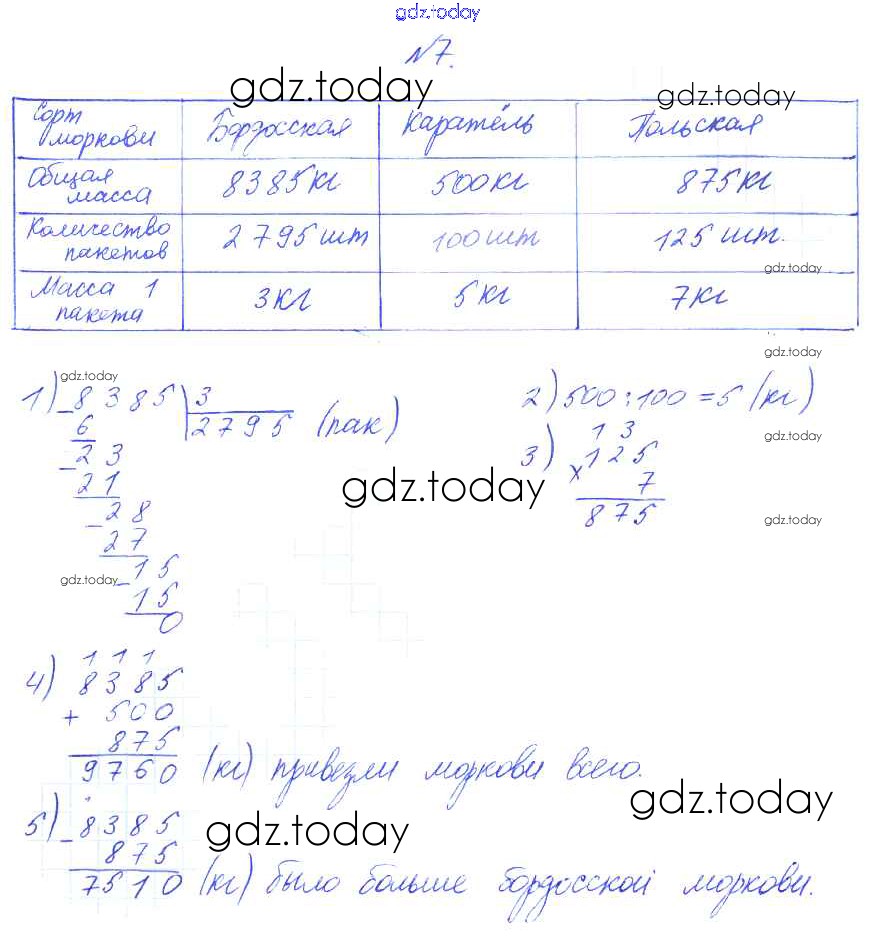 gdz.today
№7.
gdz.today
gdz.today
Сорт моркови Бордосская Каратель Польская
Общая масса 8385кг 500кг 875кг
Количество пакетов 2795шт 100шт 125шт.
gdz.today
Масса 1 пакета 3кг 5кг 7кг
gdz.today
gdz.today
1) 8385 3
- 6 2795 (пак)
- 23
21
- 28
27
- 15
15
0
gdz.today
2) 500:100=5 (кг)
gdz.today
1 3
3) 125
× 7
875
gdz.today
gdz.today
1 1 1
4) 8385
+ 500
875
9760 (кг) привезли моркови всего.
gdz.today
5) - 8385
875
gdz.today
7510 (кг) было больше бордосской моркови.